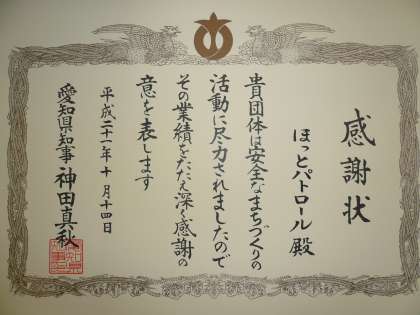 感謝状
ほっとパトロール殿
貴団体は安全なまちづくりの
活動に尽力されましたので
その業績をたたえ深く感謝の
意を表します
平成二十一年十月十四日
愛知県知事 神田真秋